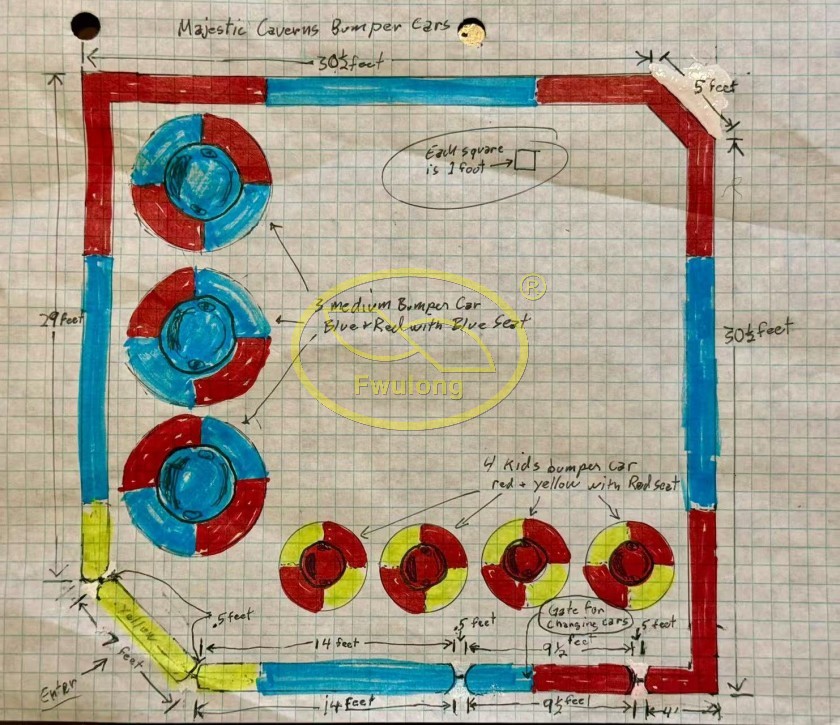 Majestic Caverns Bumper Cars
30½ feet
5 feet
Each square
is 1 foot
29 feet
3 medium Bumper Car
Blue + Red with Blue Seat
®
Fwulong
30½ feet
4 Kids bumper car
red + yellow with Red seat
.5 feet
Yellow
7 feet
Enter
Gate For
Changing cars
.5 feet
.5 feet
14 feet
9½ feet
14 feet
9½ feet
4'